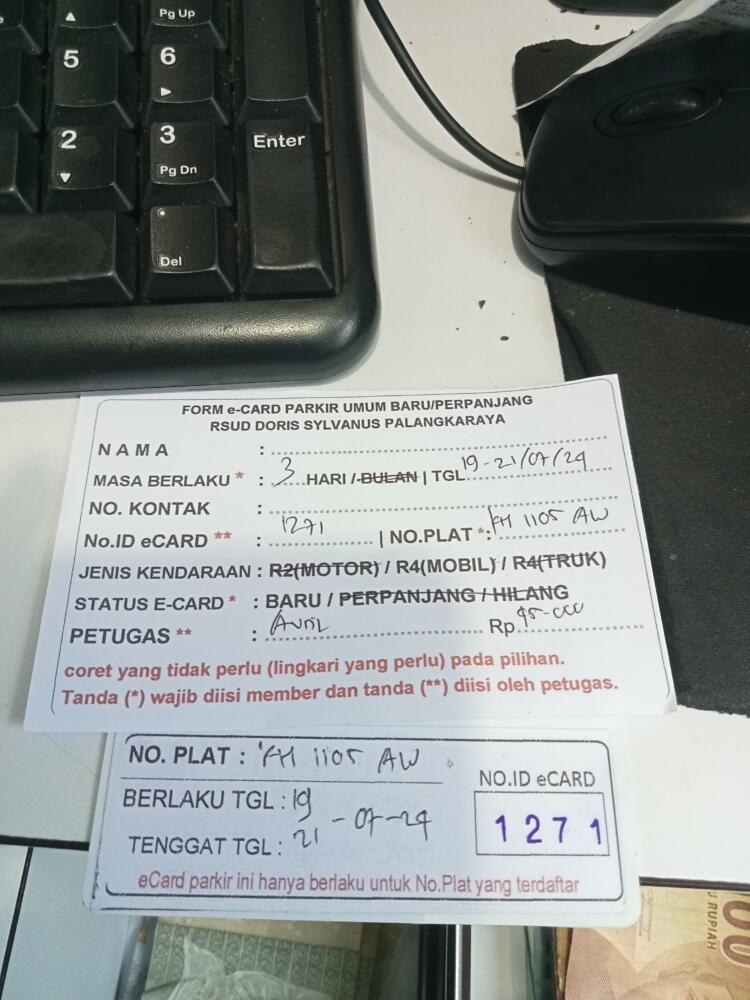 Pg Up
5
6
2
3
Pg Dn
Enter
Del
FORM e-CARD PARKIR UMUM BARU/PERPANJANG
RSUD DORIS SYLVANUS PALANGKARAYA
NAMA :
MASA BERLAKU * : 3 HARI / BULAN | TGL 19-21/07/24
NO. KONTAK :
No.ID eCARD ** : 1271 | NO.PLAT *: KH 1105 AW
JENIS KENDARAAN : R2(MOTOR) / R4(MOBIL) / R4(TRUK)
STATUS E-CARD * : BARU / PERPANJANG / HILANG
PETUGAS ** : Avril Rp 45-000
coret yang tidak perlu (lingkari yang perlu) pada pilihan.
Tanda (*) wajib diisi member dan tanda (**) diisi oleh petugas.
NO. PLAT : KH 1105 AW
NO.ID eCARD
BERLAKU TGL : 19
1271
TENGGAT TGL : 21 - 07-24
eCard parkir ini hanya berlaku untuk No.Plat yang terdaftar
RUPIAH